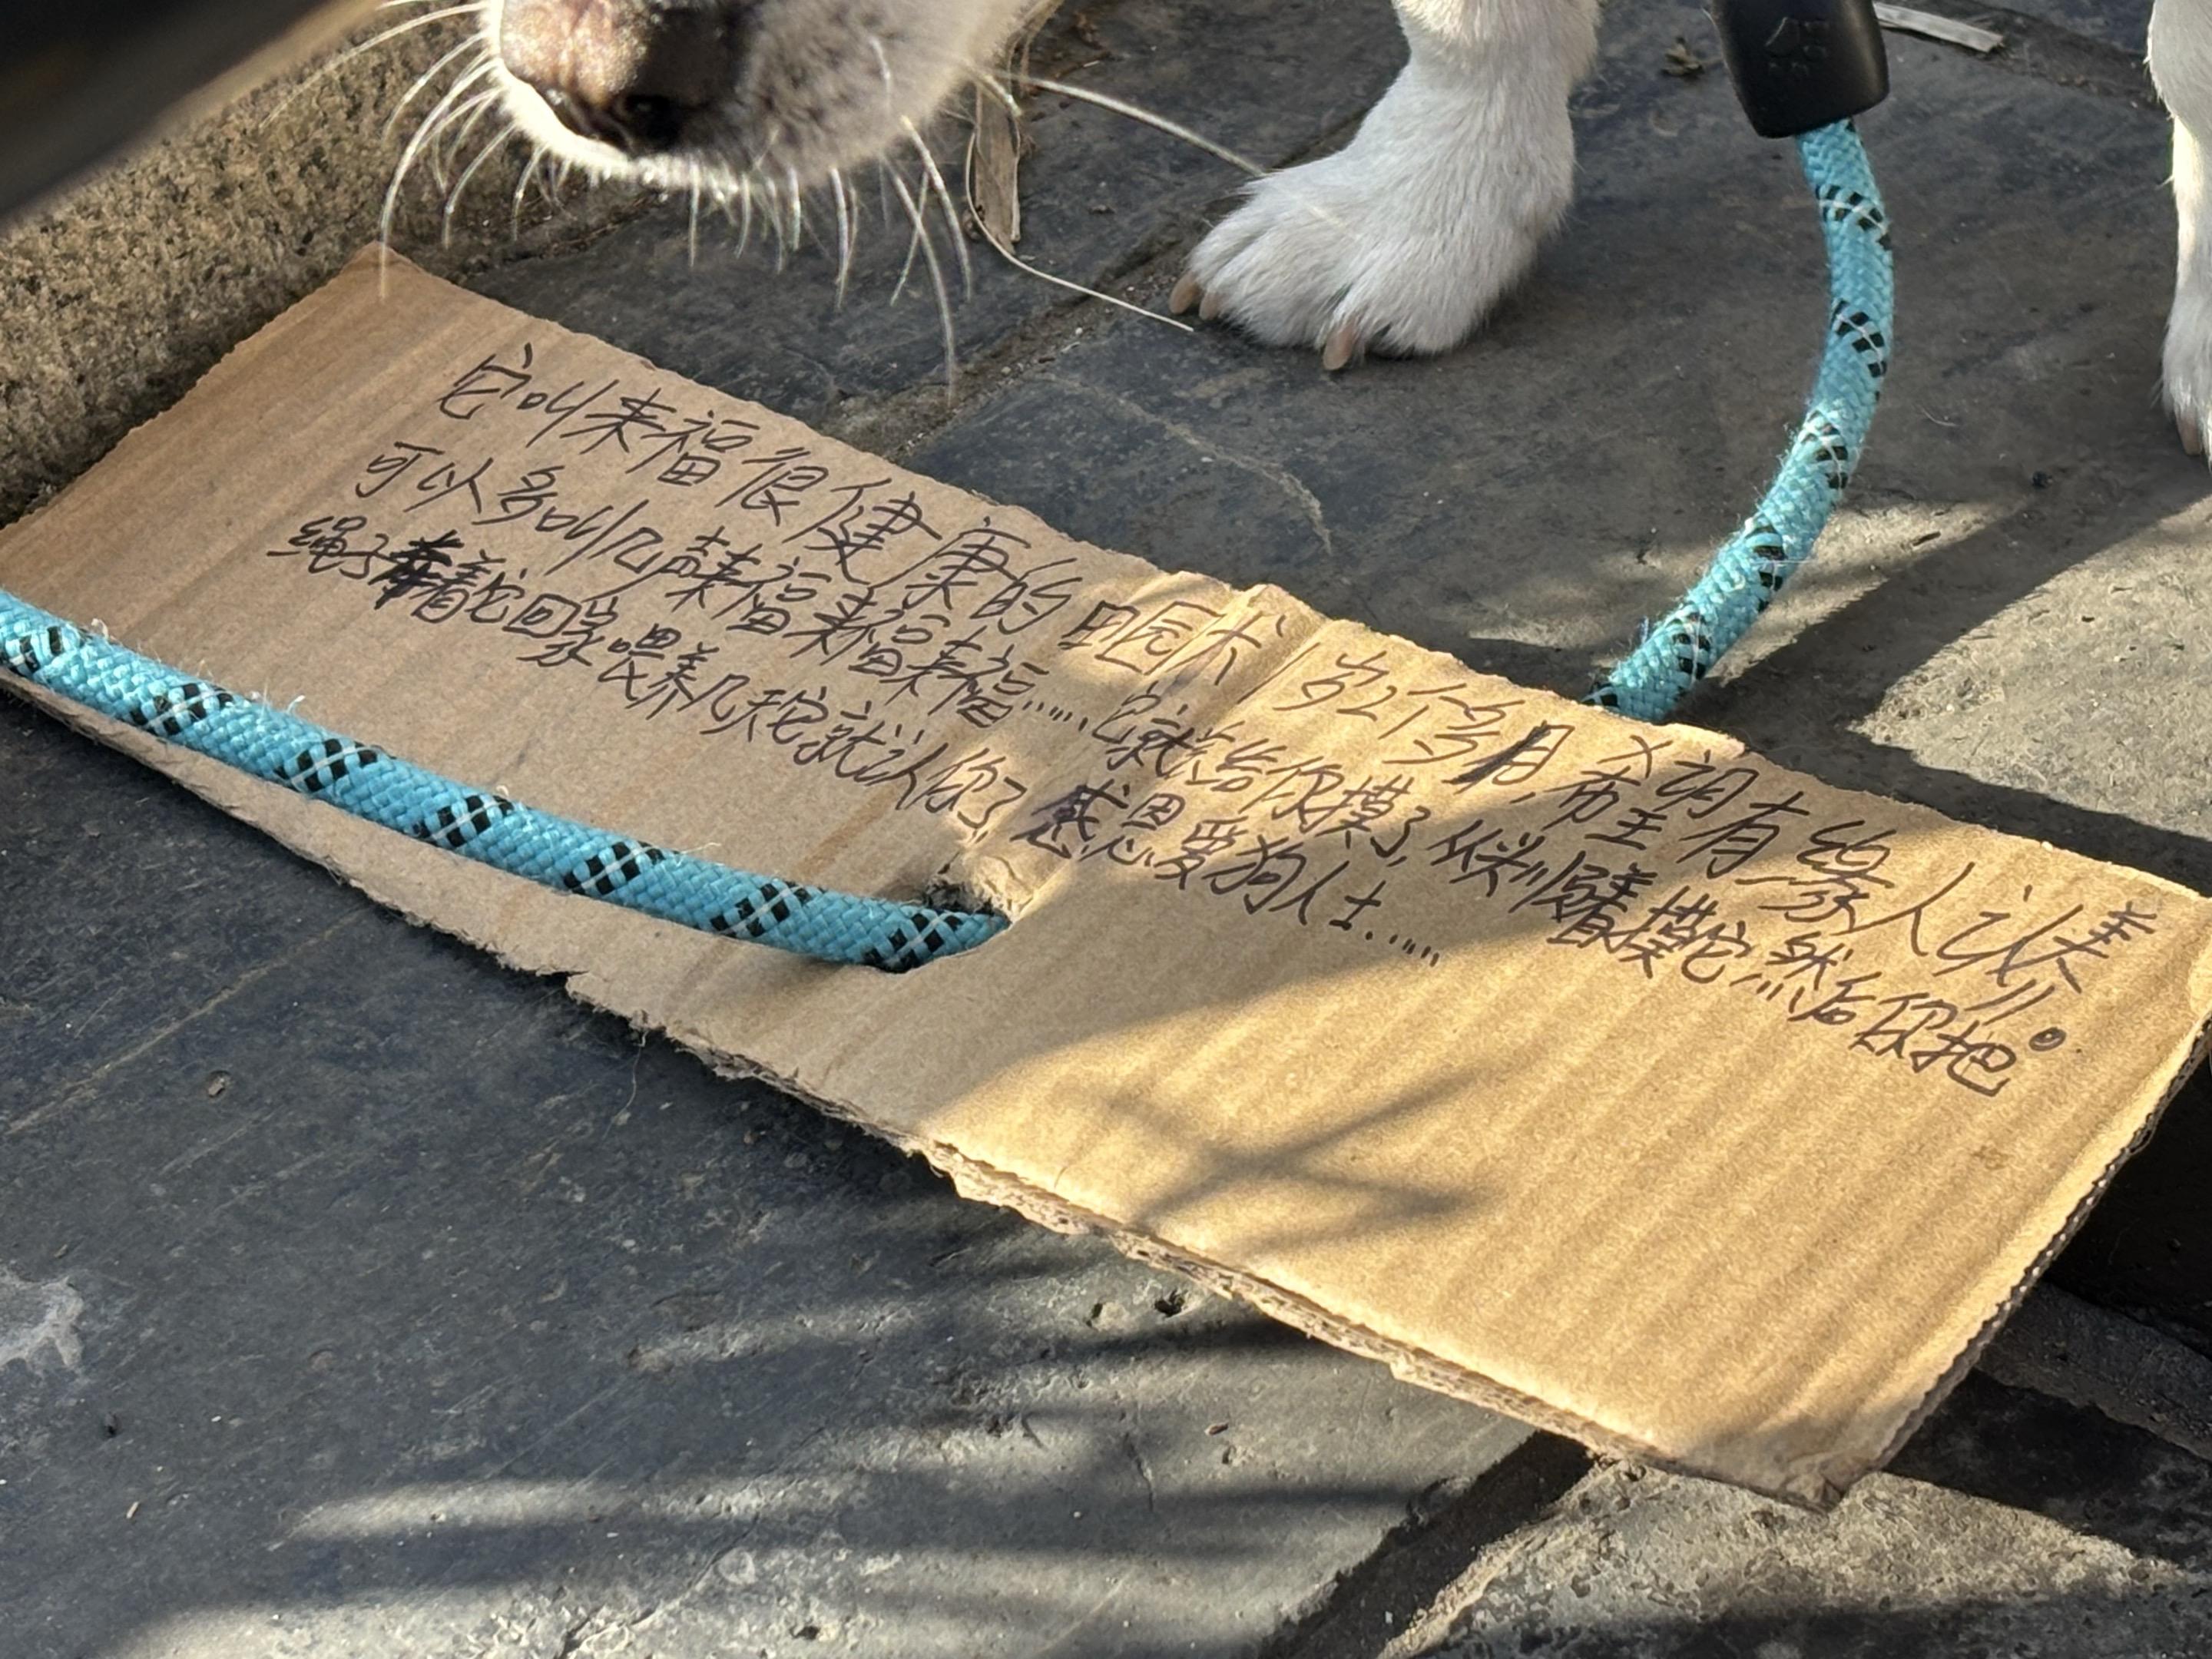 它叫来福很健康的田园犬1岁2个多月,希望有缘人认养!!。
可以多叫几声来福来福来福……它就给你摸了,从头顺着摸它,然后你把
绳子牵着它回家喂养几天它就认你了,感恩爱狗人士……